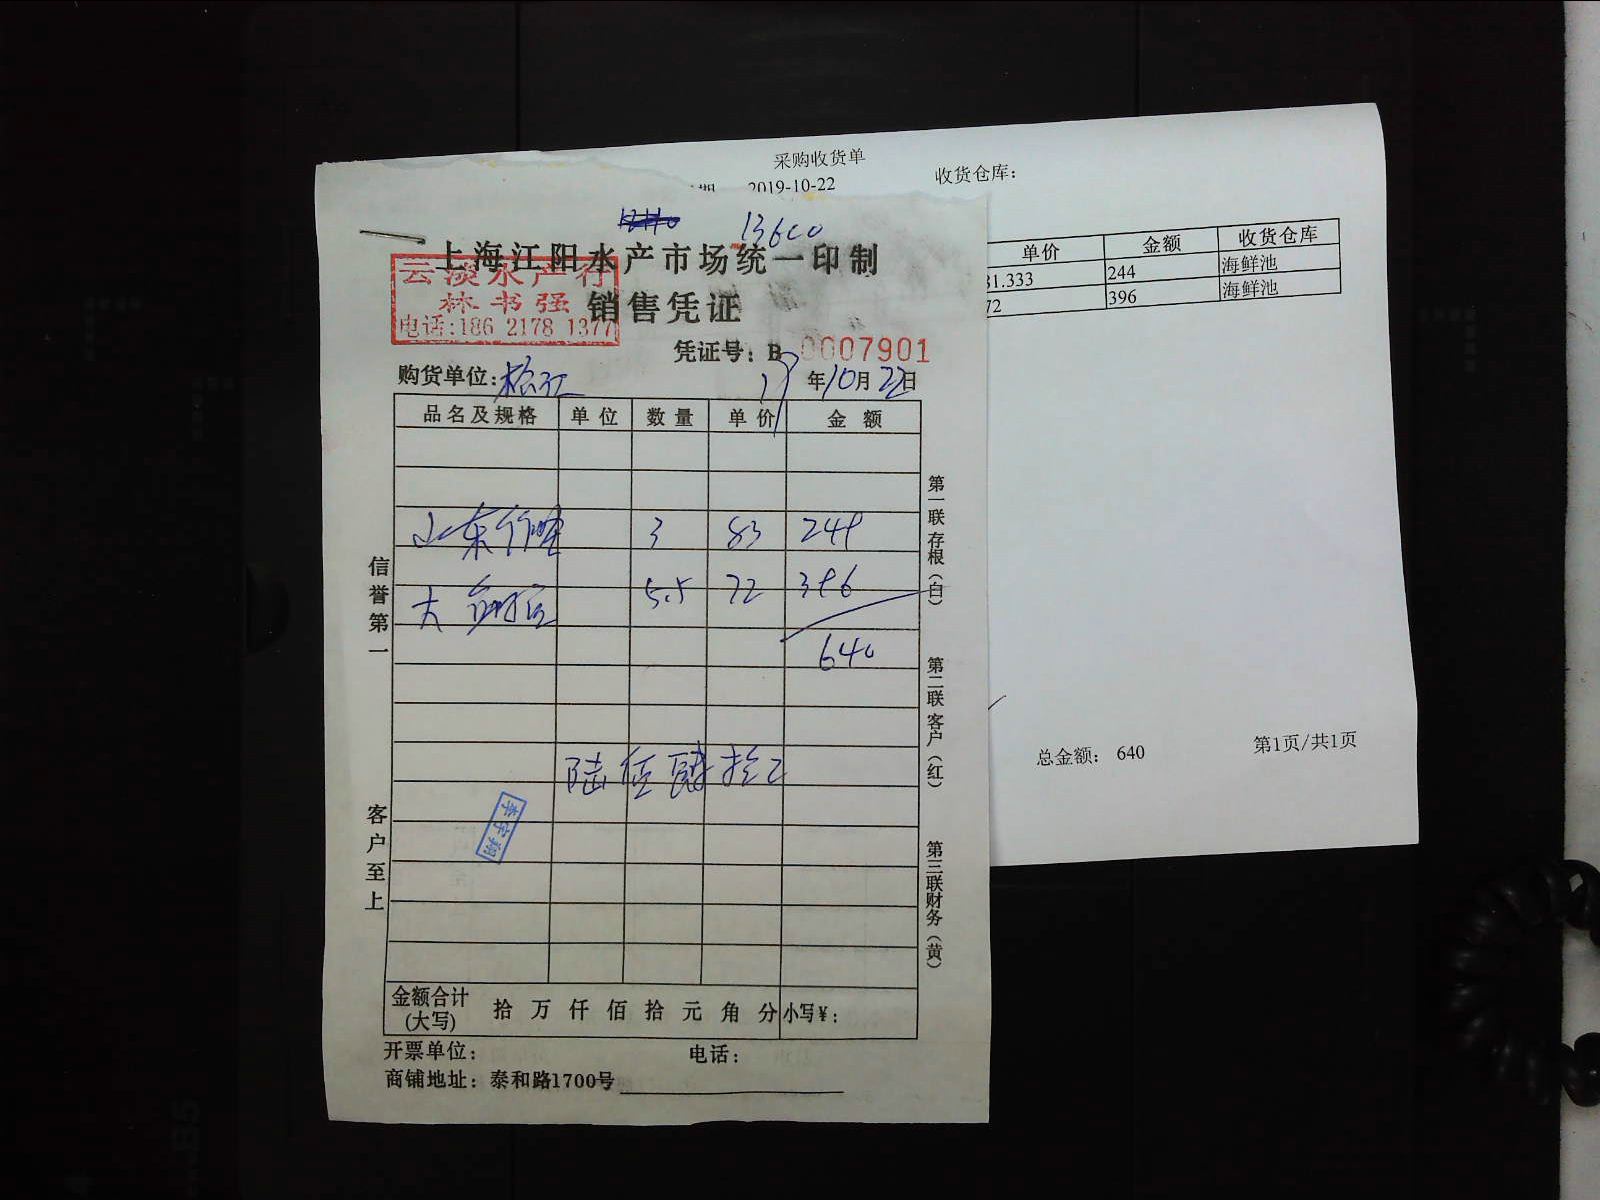 采购收货单
2019-10-22
收货仓库:
13600
上海江阳水产市场统一印制
云淡水产行
林书强
电话:186 2178 1377
销售凭证
凭证号: B 0007901
购货单位:松江
19年10月22日
品名及规格 单位 数量 单价 金额
山东 3 83 249
大 5.5 72 396
640
陆佰肆拾元
李宇翔
信誉第一
客户至上
第一联存根(白)
第二联客户(红)
第三联财务(黄)
金额合计(大写) 拾 万 仟 佰 拾 元 角 分 小写¥:
开票单位: 电话:
商铺地址: 泰和路1700号
单价 金额 收货仓库
81.333 244 海鲜池
72 396 海鲜池
总金额: 640
第1页/共1页